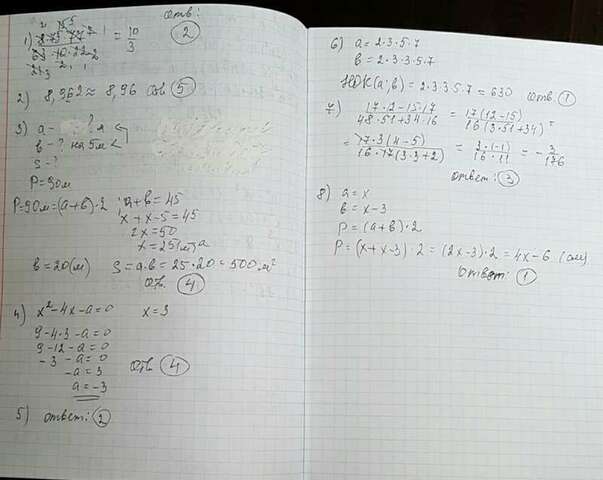 Отв:
1) = 10/3 (2)
2) 8,962 ≈ 8,96 Отв (5)
3) a - ? м
b - ? на 5м <
S - ?
P = 90м
P = 90м = (a+b)·2 a + b = 45
x + x - 5 = 45
2x = 50
x = 25(м) a
b = 20(м) S = a·b = 25·20 = 500 м²
Отв. (4)
4) x² - 4x - a = 0 x = 3
9 - 4·3 - a = 0
9 - 12 - a = 0
-3 - a = 0 Отв (4)
-a = 3
a = -3
5) ответ: (2)
6) a = 2·3·5·7
b = 2·3·3·5·7
НОК(a;b) = 2·3·3·5·7 = 630 Отв (1)
7) 17·2-15·17/48·51+34·16 = 17(12-15)/16(3·51+34) =
= 17·3(4-5)/16·17(3·3+2) = 3·(-1)/16·11 = -3/176
ответ: (3)
8) a = x
b = x - 3
P = (a+b)·2
P = (x + x - 3)·2 = (2x - 3)·2 = 4x - 6 (см)
Ответ: (1)